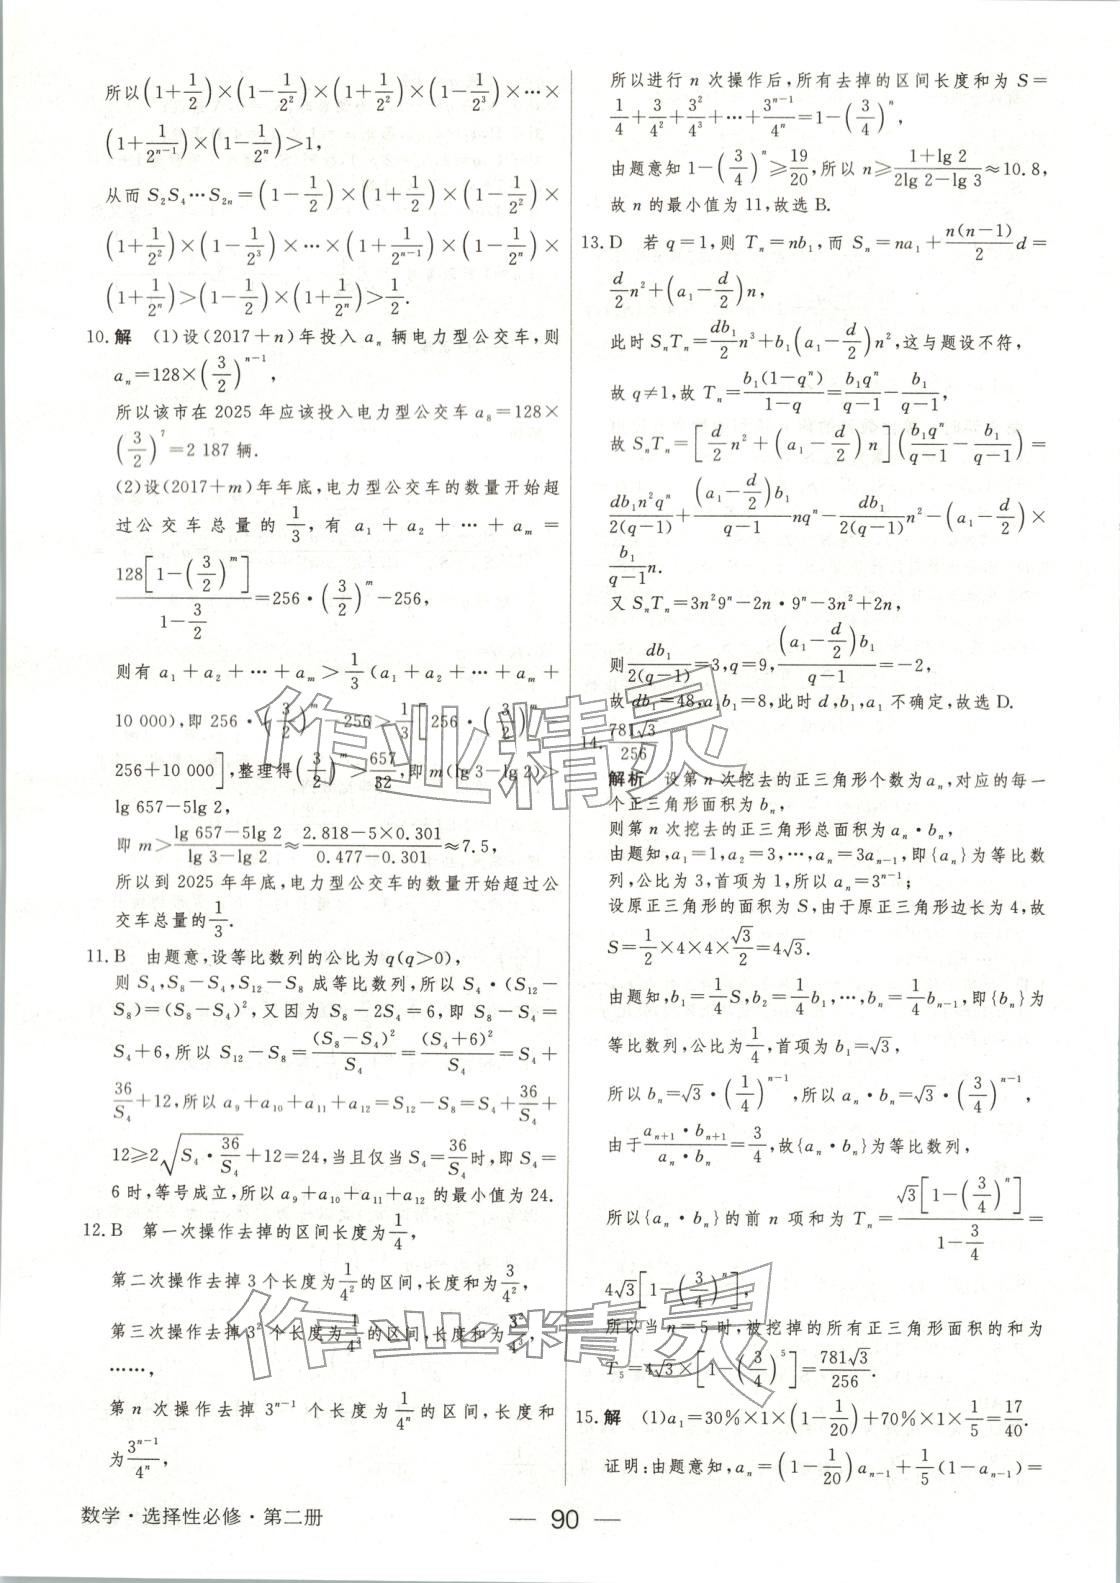 所以(1+1/2)×(1-1/2²)×(1+1/2²)×(1-1/2³)×…×
(1+1/2ⁿ⁻¹)×(1-1/2ⁿ)>1,
从而 S₂S₄…S₂ₙ=(1-1/2)×(1+1/2)×(1-1/2²)×
(1+1/2²)×(1-1/2³)×…×(1+1/2ⁿ⁻¹)×(1-1/2ⁿ)×
(1+1/2ⁿ)>(1-1/2)×(1+1/2ⁿ)>1/2.
10. 解 (1)设(2017+n)年投入 aₙ 辆电力型公交车,则
aₙ=128×(3/2)ⁿ⁻¹,
所以该市在 2025 年应该投入电力型公交车 a₈=128×
(3/2)⁷=2 187 辆.
(2)设(2017+m)年年底,电力型公交车的数量开始超
过公交车总量的 1/3,有 a₁+a₂+…+aₘ=
128[1-(3/2)ᵐ]/(1-3/2)=256·(3/2)ᵐ-256,
则有 a₁+a₂+…+aₘ>1/3(a₁+a₂+…+aₘ+
10 000),即 256·(3/2)ᵐ-256>1/3[256·(3/2)ᵐ-
256+10 000],整理得(3/2)ᵐ>657/32,即 m(lg 3-lg 2)>
lg 657-5lg 2,
即 m>(lg 657-5lg 2)/(lg 3-lg 2)≈(2.818-5×0.301)/(0.477-0.301)≈7.5,
所以到 2025 年年底,电力型公交车的数量开始超过公
交车总量的1/3.
11. B 由题意,设等比数列的公比为 q(q>0),
则 S₄,S₈-S₄,S₁₂-S₈ 成等比数列,所以 S₄·(S₁₂-
S₈)=(S₈-S₄)²,又因为 S₈-2S₄=6,即 S₈-S₄=
S₄+6,所以 S₁₂-S₈=(S₈-S₄)²/S₄=(S₄+6)²/S₄=S₄+
36/S₄+12,所以 a₉+a₁₀+a₁₁+a₁₂=S₁₂-S₈=S₄+36/S₄+
12≥2√(S₄·36/S₄)+12=24,当且仅当 S₄=36/S₄时,即 S₄=
6 时,等号成立,所以 a₉+a₁₀+a₁₁+a₁₂ 的最小值为 24.
12. B 第一次操作去掉的区间长度为1/4,
第二次操作去掉 3 个长度为1/4²的区间,长度和为3/4²,
第三次操作去掉3² 个长度为1/4³的区间,长度和为3²/4³,
……,
第 n 次操作去掉 3ⁿ⁻¹ 个长度为1/4ⁿ的区间,长度和
为3ⁿ⁻¹/4ⁿ,
数学·选择性必修·第二册
所以进行 n 次操作后,所有去掉的区间长度和为 S=
1/4+3/4²+3²/4³+…+3ⁿ⁻¹/4ⁿ=1-(3/4)ⁿ,
由题意知 1-(3/4)ⁿ≥19/20,所以 n≥(1+lg 2)/(2lg 2-lg 3)≈10.8,
故 n 的最小值为 11,故选 B.
13. D 若 q=1,则 Tₙ=nb₁,而 Sₙ=na₁+n(n-1)/2 d=
d/2 n²+(a₁-d/2)n,
此时 SₙTₙ=db₁/2 n³+b₁(a₁-d/2)n²,这与题设不符,
故 q≠1,故 Tₙ=b₁(1-qⁿ)/(1-q)=b₁qⁿ/(q-1)-b₁/(q-1),
故 SₙTₙ=[d/2 n²+(a₁-d/2)n](b₁qⁿ/(q-1)-b₁/(q-1))=
db₁n²qⁿ/2(q-1)+(a₁-d/2)b₁/(q-1) nqⁿ-db₁/2(q-1) n²-(a₁-d/2)×
b₁/(q-1) n.
又 SₙTₙ=3n²9ⁿ-2n·9ⁿ-3n²+2n,
则db₁/2(q-1)=3,q=9,(a₁-d/2)b₁/(q-1)=-2,
故 db₁=48,a₁b₁=8,此时 d,b₁,a₁ 不确定,故选 D.
14. 781√3/256
解析 设第 n 次挖去的正三角形个数为 aₙ,对应的每一
个正三角形面积为 bₙ,
则第 n 次挖去的正三角形总面积为 aₙ·bₙ,
由题知,a₁=1,a₂=3,…,aₙ=3aₙ₋₁,即{aₙ}为等比数
列,公比为 3,首项为 1,所以 aₙ=3ⁿ⁻¹;
设原正三角形的面积为 S,由于原正三角形边长为 4,故
S=1/2×4×4×√3/2=4√3.
由题知,b₁=1/4 S,b₂=1/4 b₁,…,bₙ=1/4 bₙ₋₁,即{bₙ}为
等比数列,公比为1/4,首项为 b₁=√3,
所以 bₙ=√3·(1/4)ⁿ⁻¹,所以 aₙ·bₙ=√3·(3/4)ⁿ⁻¹,
由于(aₙ₊₁·bₙ₊₁)/(aₙ·bₙ)=3/4,故{aₙ·bₙ}为等比数列,
所以{aₙ·bₙ}的前 n 项和为 Tₙ=√3[1-(3/4)ⁿ]/(1-3/4)=
4√3[1-(3/4)ⁿ],
所以当 n=5 时,被挖掉的所有正三角形面积的和为
T₅=4√3×[1-(3/4)⁵]=781√3/256.
15. 解 (1)a₁=30%×1×(1-1/20)+70%×1×1/5=17/40.
证明:由题意知,aₙ=(1-1/20)aₙ₋₁+1/5(1-aₙ₋₁)=
— 90 —
作业精灵
作业精灵